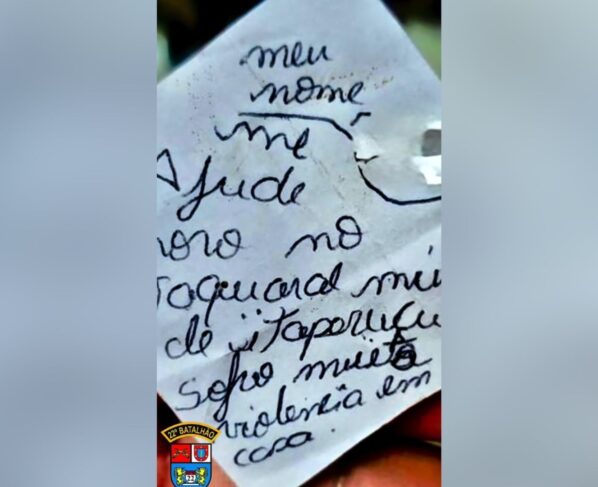 meu
nome
me
Ajude
moro no
Taquaral mu
de itaperuçu
sofro muita
violencia em
casa.
22º BATALHÃO
22